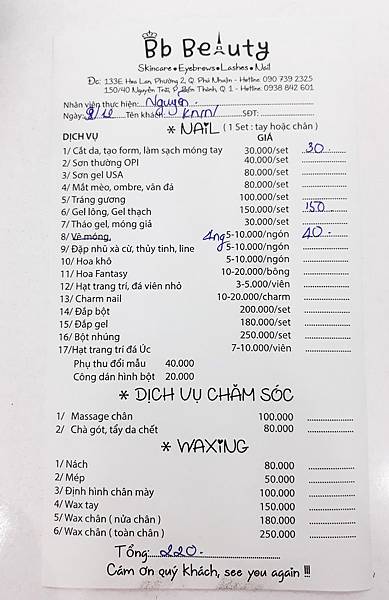 Bb Beauty
Skincare • Eyebrows • Lashes • Nail
Đc: 133E Hoa Lan, Phường 2, Q. Phú Nhuận - Hotline: 090 739 2325
150/40 Nguyễn Trãi, P. Bến Thành, Q. 1 - Hotline: 0938 842 601
Nhân viên thực hiện: Nguyên.
Ngày: 9/10 Tên khách: SĐT:
* NAIL ( 1 Set : tay hoặc chân )
DỊCH VỤ GIÁ
1/ Cắt da, tạo form, làm sạch móng tay 30.000/set 30
2/ Sơn thường OPI 40.000/set
3/ Sơn gel USA 80.000/set
4/ Mắt mèo, ombre, vân đá 80.000/set
5/ Tráng gương 100.000/set
6/ Gel lông, Gel thạch 150.000/set 150
7/ Tháo gel, móng giả 30.000/set
8/ Vẽ móng 4ng 5-10.000/ngón 40
9/ Đập nhũ xà cừ, thủy tinh, line 5-10.000/ngón
10/ Hoa khô 5-10.000/ngón
11/ Hoa Fantasy 10-20.000/bông
12/ Hạt trang trí, đá viên nhỏ 3-5.000/viên
13/ Charm nail 10-20.000/charm
14/ Đắp bột 200.000/set
15/ Đắp gel 180.000/set
16/ Bột nhúng 250.000/set
17/Hạt trang trí đá Úc 7-10.000/viên
Phụ thu đổi mẫu 40.000
Công dán hình bột 20.000
* DỊCH VỤ CHĂM SÓC
1/ Massage chân 100.000
2/ Chà gót, tẩy da chết 80.000
* WAXING
1/ Nách 80.000
2/ Mép 50.000
3/ Định hình chân mày 100.000
4/ Wax tay 150.000
5/ Wax chân ( nửa chân ) 180.000
6/ Wax chân ( toàn chân ) 250.000
Tổng: 220.
Cám ơn quý khách, see you again !!!